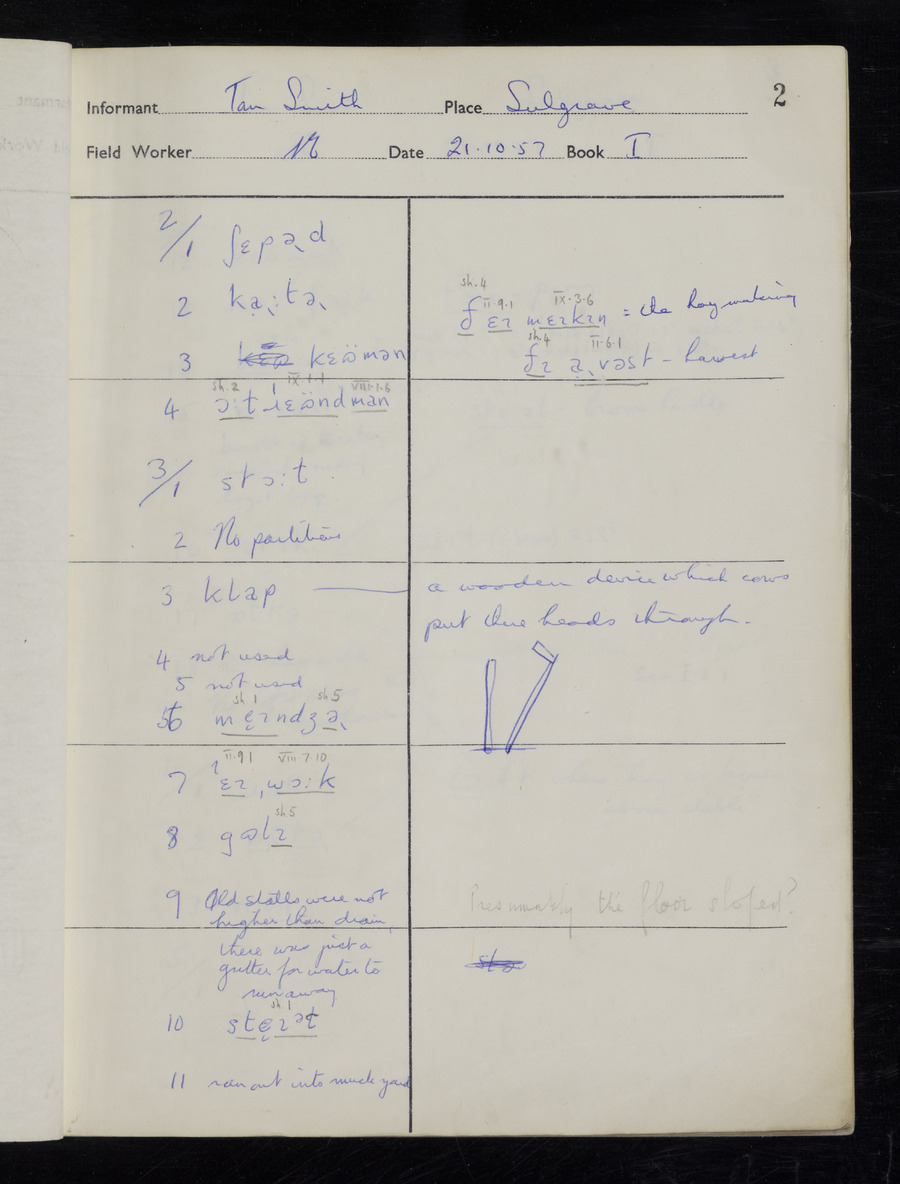 2
Informant Tom Smith Place Sulgrave
Field Worker Date 21.10.57 Book I
2/1 ʃɛpəd
2 ka:tə
sh.4 II.9.1 IX.3.6
= the hay making
3 kɛömən
sh.4 II.6.1
vəst - harvest
sh.2 IX.1.1 VIII.1.6
4 ɔ:t mən
3/1 stɔ:t
2 No partitions
3 klap — a wooden device which cows
put there heads through.
4 not used
5 not used
sh 1 sh 5
6
II.9.1 VIII.7.10
7 wɔ:k
sh 5
8
9 Old stalls were not
higher than drain,
Presumably the floor sloped?
there was just a
gutter for water to
run away
sh 1
10
11 ran out into muck yard